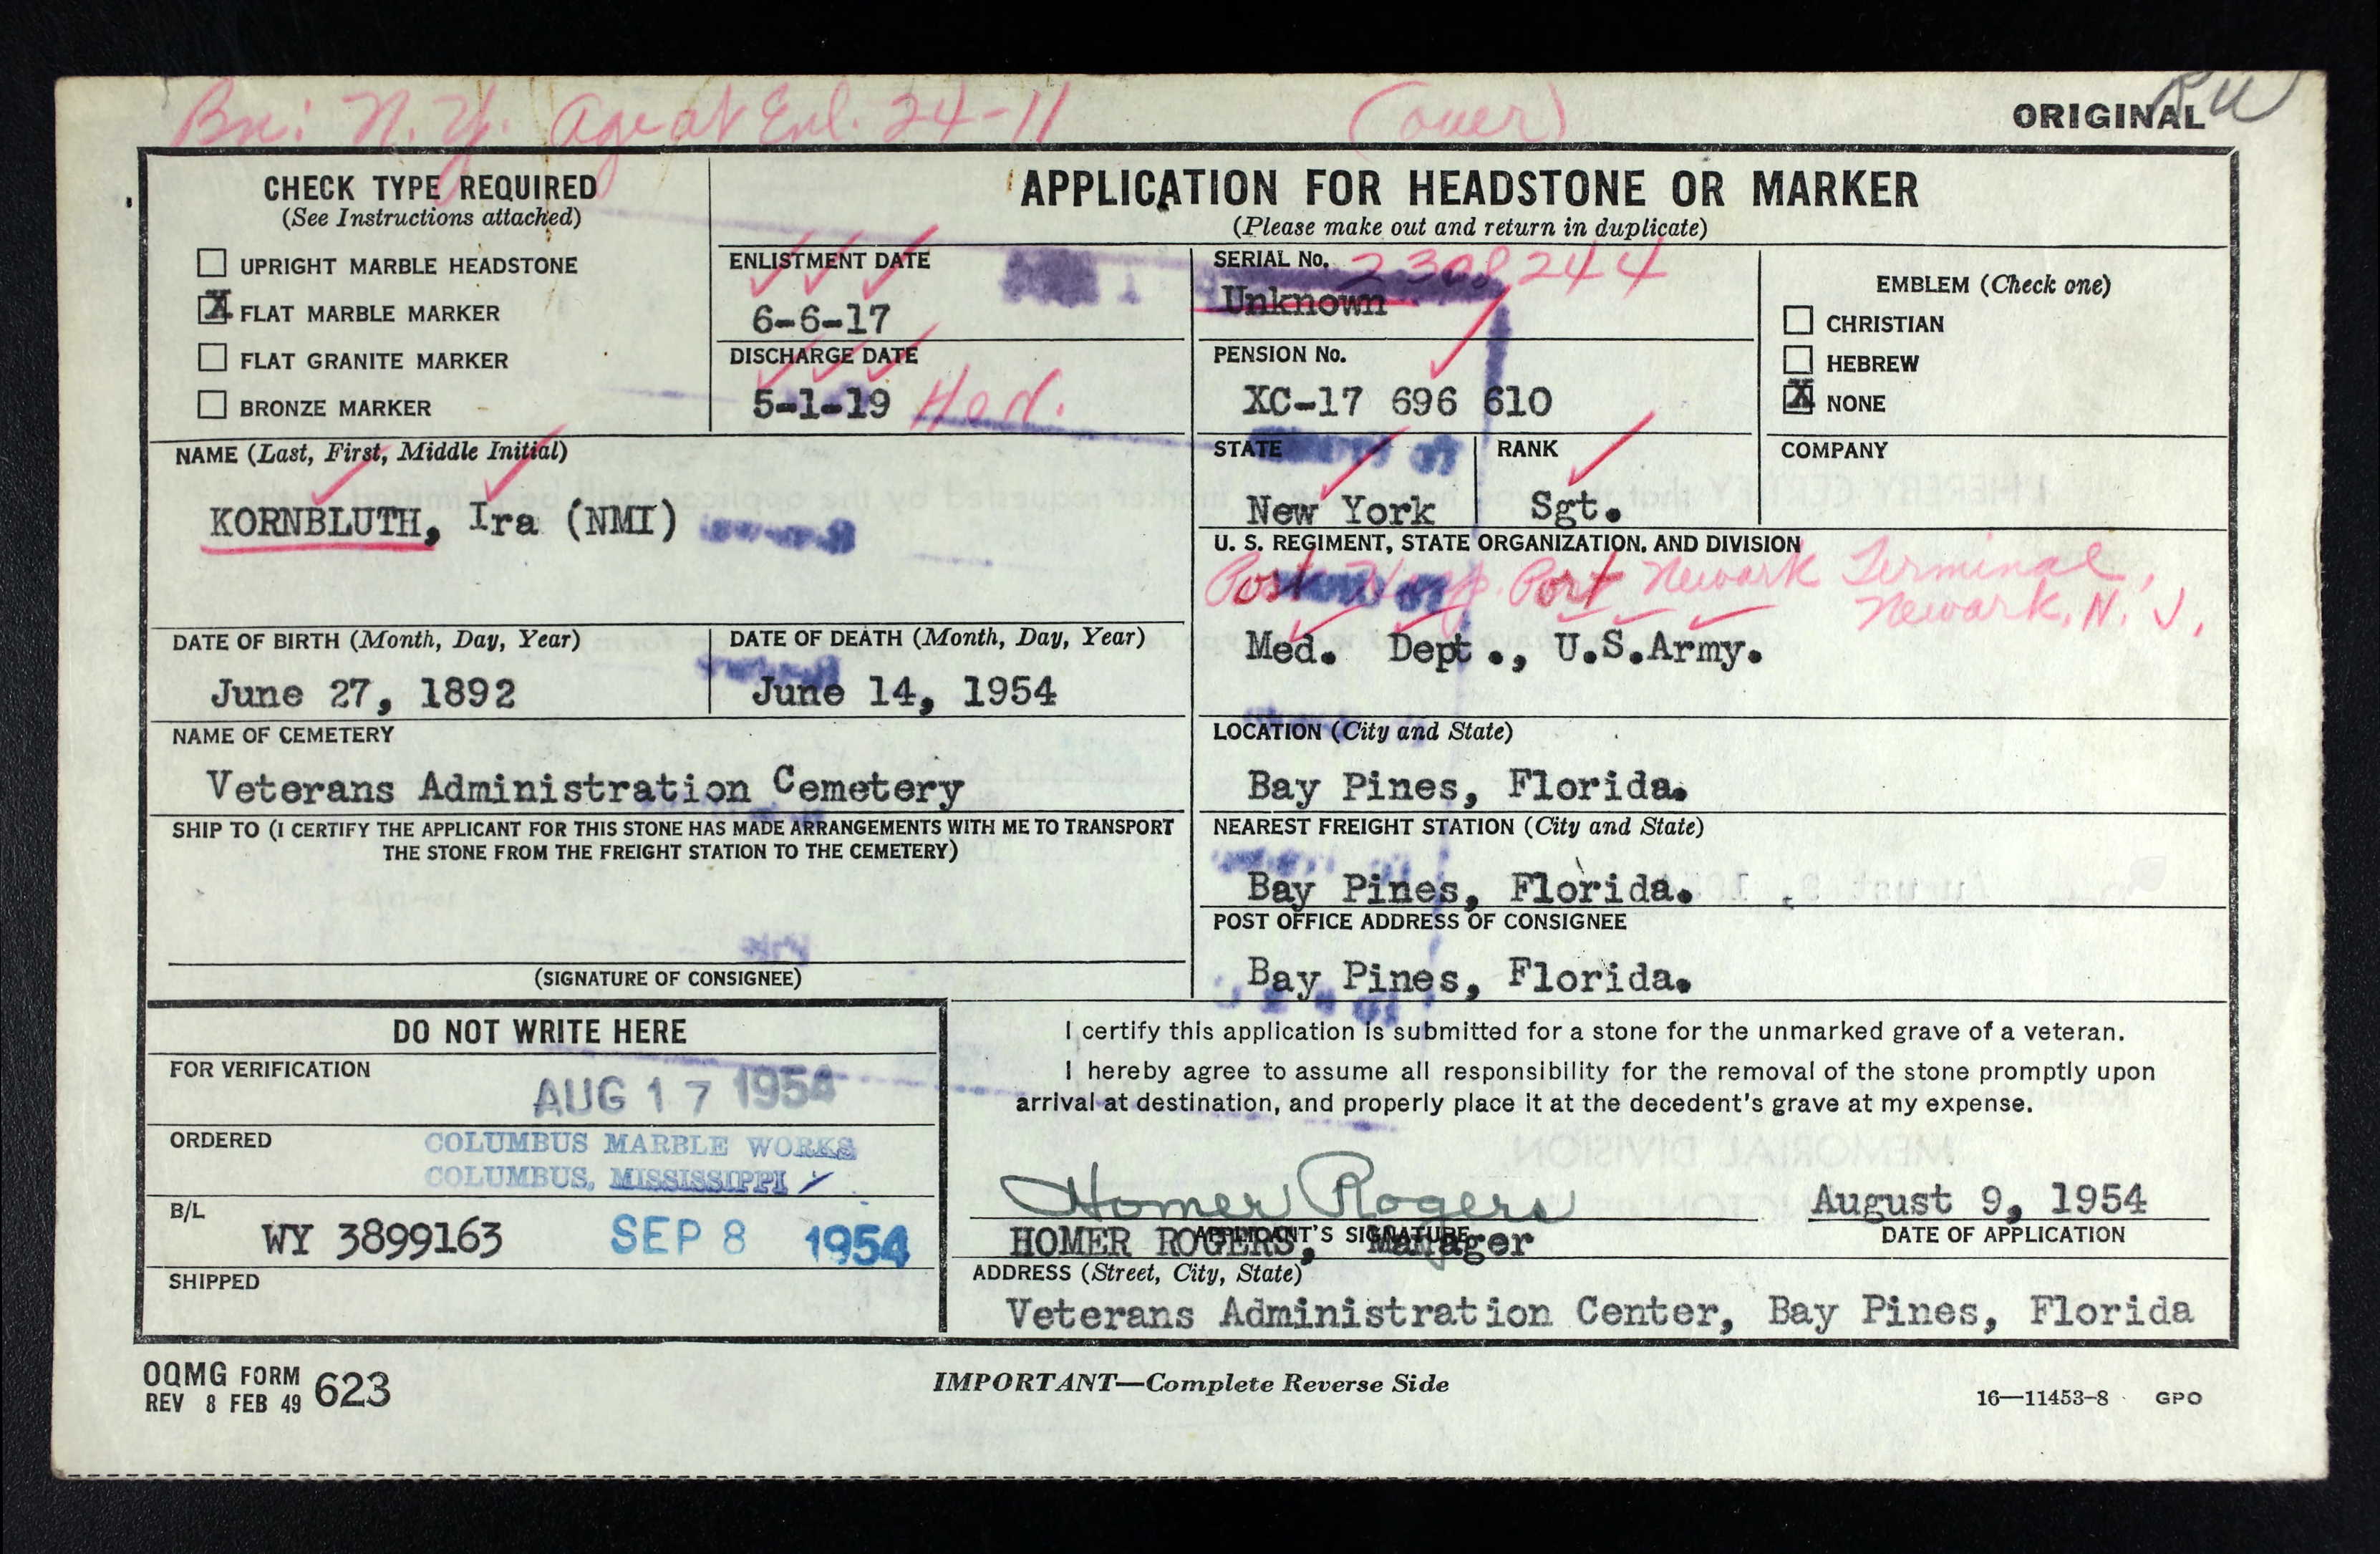 Bn: N.Y. Age at Enl. 24-11 (over)
ORIGINAL
CHECK TYPE REQUIRED
(See Instructions attached)
UPRIGHT MARBLE HEADSTONE
X FLAT MARBLE MARKER
FLAT GRANITE MARKER
BRONZE MARKER
APPLICATION FOR HEADSTONE OR MARKER
(Please make out and return in duplicate)
ENLISTMENT DATE
6-6-17
DISCHARGE DATE
5-1-19 Hon.
SERIAL No. 2308244
Unknown
PENSION No.
XC-17 696 610
EMBLEM (Check one)
CHRISTIAN
HEBREW
X NONE
NAME (Last, First, Middle Initial)
KORNBLUTH, Ira (NMI)
STATE
New York
RANK
Sgt.
COMPANY
U. S. REGIMENT, STATE ORGANIZATION, AND DIVISION
Post Hosp. Port Newark Terminal,
Newark, N. J.
Med. Dept., U.S.Army.
DATE OF BIRTH (Month, Day, Year)
June 27, 1892
DATE OF DEATH (Month, Day, Year)
June 14, 1954
NAME OF CEMETERY
Veterans Administration Cemetery
LOCATION (City and State)
Bay Pines, Florida.
SHIP TO (I CERTIFY THE APPLICANT FOR THIS STONE HAS MADE ARRANGEMENTS WITH ME TO TRANSPORT
THE STONE FROM THE FREIGHT STATION TO THE CEMETERY)
NEAREST FREIGHT STATION (City and State)
Bay Pines, Florida.
POST OFFICE ADDRESS OF CONSIGNEE
Bay Pines, Florida.
(SIGNATURE OF CONSIGNEE)
DO NOT WRITE HERE
FOR VERIFICATION
AUG 17 1954
ORDERED
COLUMBUS MARBLE WORKS
COLUMBUS, MISSISSIPPI
B/L
WY 3899163 SEP 8 1954
SHIPPED
I certify this application is submitted for a stone for the unmarked grave of a veteran.
I hereby agree to assume all responsibility for the removal of the stone promptly upon
arrival at destination, and properly place it at the decedent's grave at my expense.
Homer Rogers
August 9, 1954
APPLICANT'S SIGNATURE
DATE OF APPLICATION
HOMER ROGERS, Manager
ADDRESS (Street, City, State)
Veterans Administration Center, Bay Pines, Florida
OQMG FORM 623
REV 8 FEB 49
IMPORTANT—Complete Reverse Side
16—11453-8 GPO